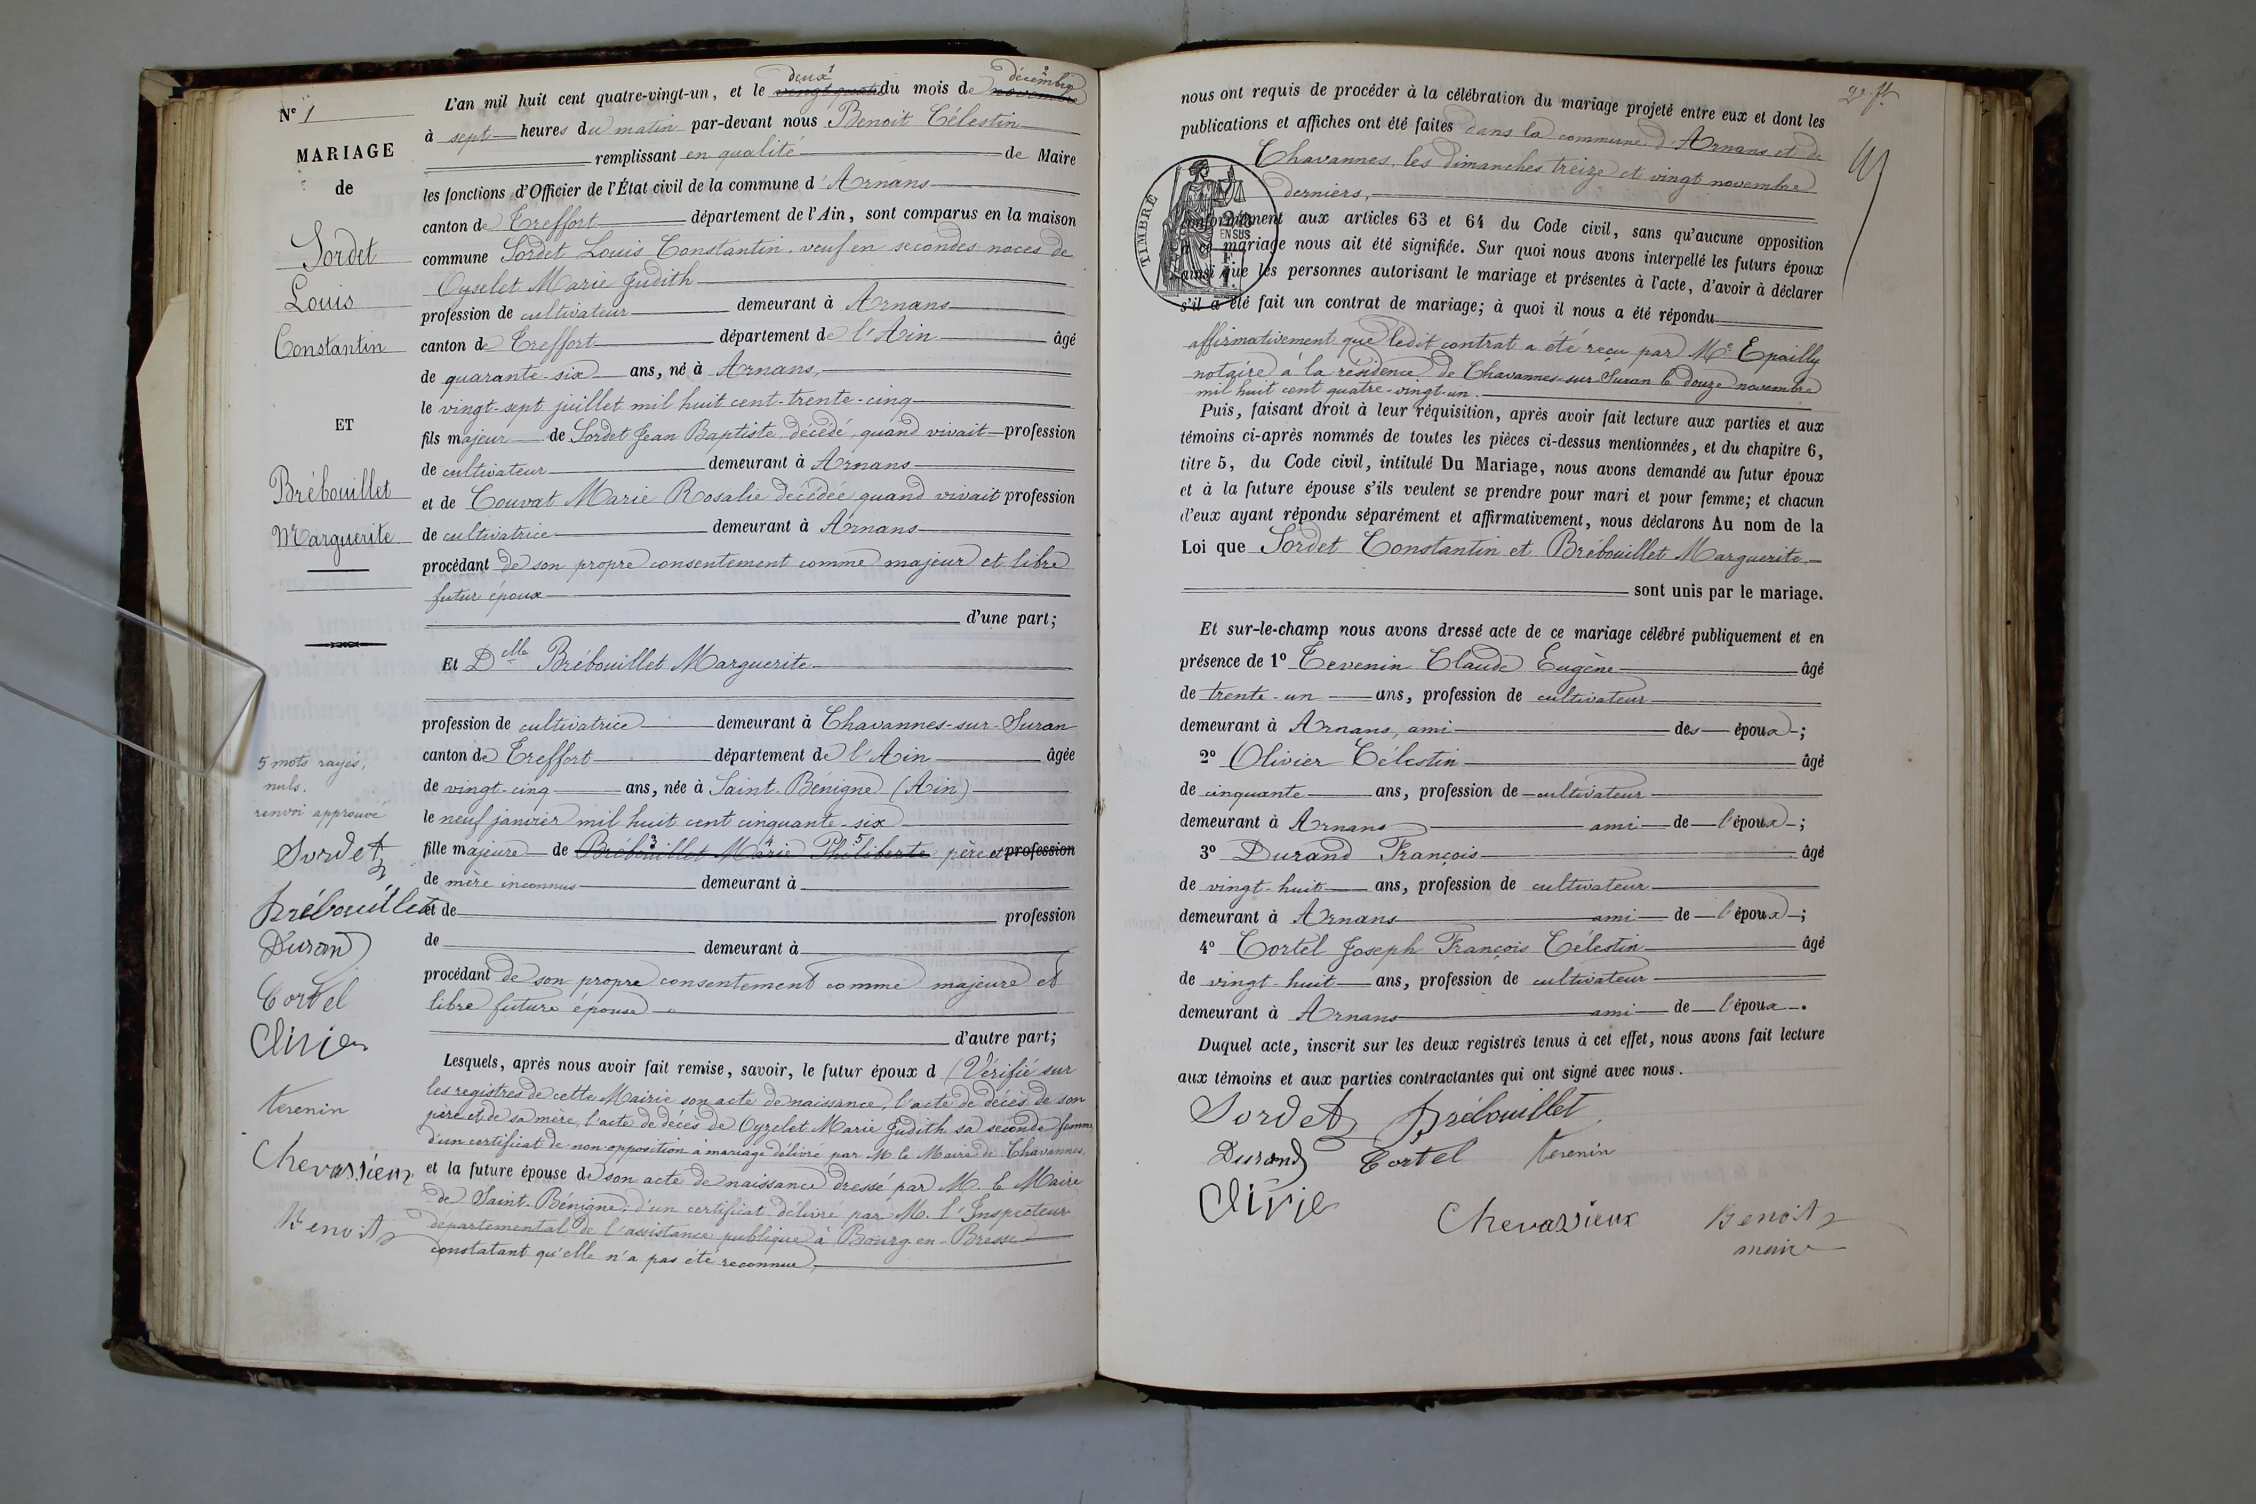 N° 1
MARIAGE
de
Sordet
Louis
Constantin
ET
Brébouillet
Marguerite
5 mots rayés,
nuls.
renvoi approuvé
Sordet
Brébouillet
Durand
Cortel
Olivier
Tevenin
Chevassieux
Benoit
deux décembre
L'an mil huit cent quatre-vingt-un, et le vingt-quatre du mois de novembre
à sept heures du matin par-devant nous Benoit Célestin
remplissant en qualité de Maire
les fonctions d'Officier de l'État civil de la commune d'Arnans
canton de Treffort département de l'Ain, sont comparus en la maison
commune Sordet Louis Constantin, veuf en secondes noces de
Oyselet Marie Judith
profession de cultivateur demeurant à Arnans
canton de Treffort département de l'Ain âgé
de quarante-six ans, né à Arnans,
le vingt-sept juillet mil huit cent-trente-cinq
fils majeur de Sordet Jean Baptiste, décédé, quand vivait profession
de cultivateur demeurant à Arnans
et de Couvat Marie Rosalie décédée quand vivait profession
de cultivatrice demeurant à Arnans
procédant de son propre consentement comme majeur et libre
futur époux
d'une part;
Et Delle Brébouillet Marguerite
profession de cultivatrice demeurant à Chavannes-sur-Suran
canton de Treffort département de l'Ain âgée
de vingt-cinq ans, née à Saint-Bénigne (Ain)
le neuf janvier mil huit cent cinquante-six
fille majeure de Brébouillet Marie Philiberte père et profession
de mère inconnus demeurant à
et de profession
de demeurant à
procédant de son propre consentement comme majeure et
libre future épouse
d'autre part;
Lesquels, après nous avoir fait remise, savoir, le futur époux d (Vérifié sur
les registres de cette Mairie son acte de naissance, l'acte de décès de son
père et de sa mère, l'acte de décès de Oyzelet Marie Judith sa seconde femme
d'un certificat de non-opposition à mariage délivré par M. le Maire de Chavannes,
et la future épouse de son acte de naissance dressé par M. le Maire
de Saint-Bénigne, d'un certificat délivré par M. l'Inspecteur
départemental de l'assistance publique à Bourg-en-Bresse
constatant qu'elle n'a pas été reconnue,
nous ont requis de procéder à la célébration du mariage projeté entre eux et dont les
publications et affiches ont été faites dans la commune d'Arnans et de
Chavannes, les dimanches treize et vingt novembre
derniers,
TIMBRÉ
2/10
EN SUS
conformément aux articles 63 et 64 du Code civil, sans qu'aucune opposition
à ce mariage nous ait été signifiée. Sur quoi nous avons interpellé les futurs époux
ainsi que les personnes autorisant le mariage et présentes à l'acte, d'avoir à déclarer
s'il a été fait un contrat de mariage; à quoi il nous a été répondu
affirmativement que ledit contrat a été reçu par Me Epailly
notaire à la résidence de Chavannes-sur-Suran le douze novembre
mil huit cent quatre-vingt-un.
Puis, faisant droit à leur réquisition, après avoir fait lecture aux parties et aux
témoins ci-après nommés de toutes les pièces ci-dessus mentionnées, et du chapitre 6,
titre 5, du Code civil, intitulé Du Mariage, nous avons demandé au futur époux
et à la future épouse s'ils veulent se prendre pour mari et pour femme; et chacun
d'eux ayant répondu séparément et affirmativement, nous déclarons Au nom de la
Loi que Sordet Constantin et Brébouillet Marguerite
sont unis par le mariage.
Et sur-le-champ nous avons dressé acte de ce mariage célébré publiquement et en
présence de 1° Tevenin Claude Eugène âgé
de trente-un ans, profession de cultivateur
demeurant à Arnans, ami des époux;
2° Olivier Célestin âgé
de cinquante ans, profession de cultivateur
demeurant à Arnans ami de l'époux;
3° Durand François âgé
de vingt-huit ans, profession de cultivateur
demeurant à Arnans ami de l'époux;
4° Cortel Joseph François Célestin âgé
de vingt-huit ans, profession de cultivateur
demeurant à Arnans ami de l'époux.
Duquel acte, inscrit sur les deux registres tenus à cet effet, nous avons fait lecture
aux témoins et aux parties contractantes qui ont signé avec nous.
Sordet Brébouillet
Durand Cortel Tevenin
Olivier
Chevassieux Benoit
maire